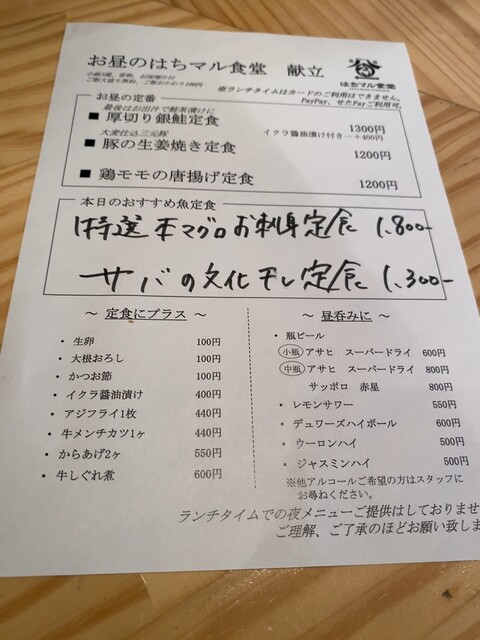 お昼のはちマル食堂 献立
小鉢3種、香物、お味噌汁付
ご飯大盛り無料、ご飯おかわり100円
はちマル食堂
※ランチタイムはカードのご利用はできません。
PayPay、せたPayご利用可。
お昼の定番
最後はお出汁で鮭茶漬けに
■ 厚切り銀鮭定食 1300円
イクラ醤油漬け付き…+400円
大麦仕込三元豚
■ 豚の生姜焼き定食 1200円
■ 鶏モモの唐揚げ定食 1200円
本日のおすすめ魚定食
特選 本マグロお刺身定食 1,800-
サバの文化干し定食 1,300-
～ 定食にプラス ～
・ 生卵 100円
・ 大根おろし 100円
・ かつお節 100円
・ イクラ醤油漬け 400円
・ アジフライ1枚 440円
・ 牛メンチカツ1ヶ 440円
・ からあげ2ヶ 550円
・ 牛しぐれ煮 600円
～ 昼呑みに ～
・ 瓶ビール
小瓶 アサヒ スーパードライ 600円
中瓶 アサヒ スーパードライ 800円
サッポロ 赤星 800円
・ レモンサワー 550円
・ デュワーズハイボール 600円
・ ウーロンハイ 500円
・ ジャスミンハイ 500円
※他アルコールご希望の方はスタッフに
お尋ねください。
ランチタイムでの夜メニューご提供はしておりませ
ご理解、ご了承のほどお願い致しま